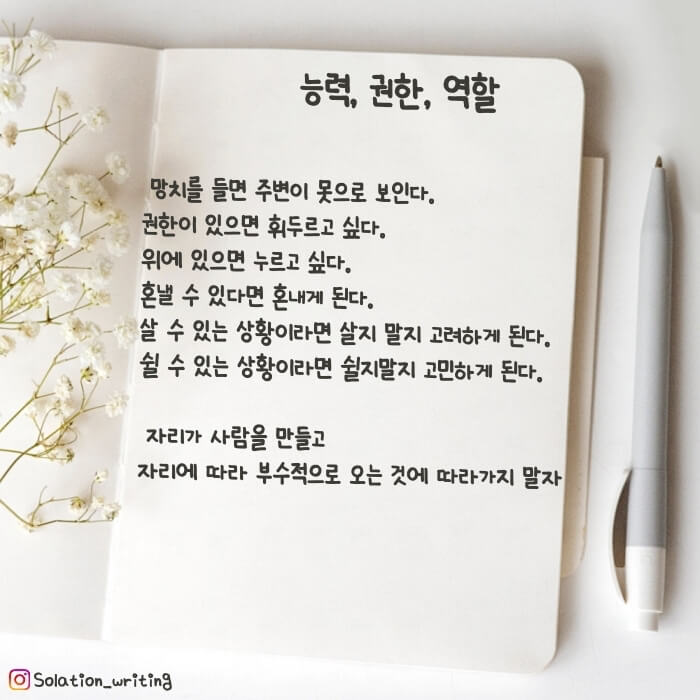 능력, 권한, 역할
망치를 들면 주변이 못으로 보인다.
권한이 있으면 휘두르고 싶다.
위에 있으면 누르고 싶다.
혼낼 수 있다면 혼내게 된다.
살 수 있는 상황이라면 살지 말지 고려하게 된다.
쉴 수 있는 상황이라면 쉴지말지 고민하게 된다.
자리가 사람을 만들고
자리에 따라 부수적으로 오는 것에 따라가지 말자
Solation_writing